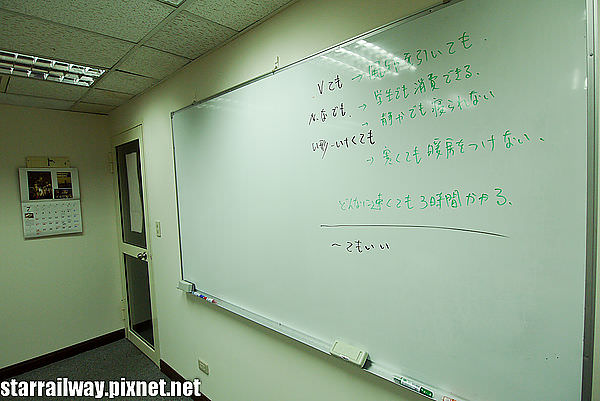 Vても → 風邪を引いても。
N.なでも。 → 学生でも消費できる。
→ 静かでも寝られない
い形-い+くても
→ 寒くても暖房をつけない。
どんなに速くても3時間かかる。
〜てもいい
7
starrailway.pixnet.net